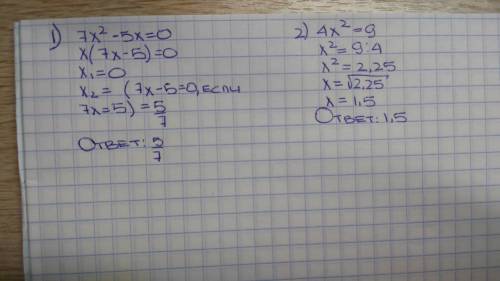 1) 7x² - 5x = 0
x(7x-5) = 0
x₁ = 0
x₂ = (7x-5=0, если
7x = 5) = 5/7
Ответ: 5/7
2) 4x² = 9
x² = 9:4
x² = 2,25
x = √2,25
x = 1,5
Ответ: 1,5